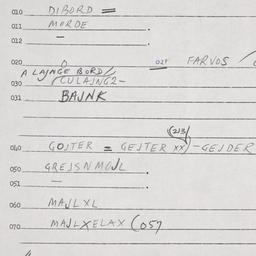 010 DIBORD =
011 MORDE .
012 — .
020 021 FARVOS /
A LAJNGE BORD /
030 CULAJNG2-
031 BAJNK
(213)
040 GOJTER = GEJTER XX) - GEJDER
050 GREJSNMOJL
051 — .
060 MAJLXL
070 MAJLXELAX (057